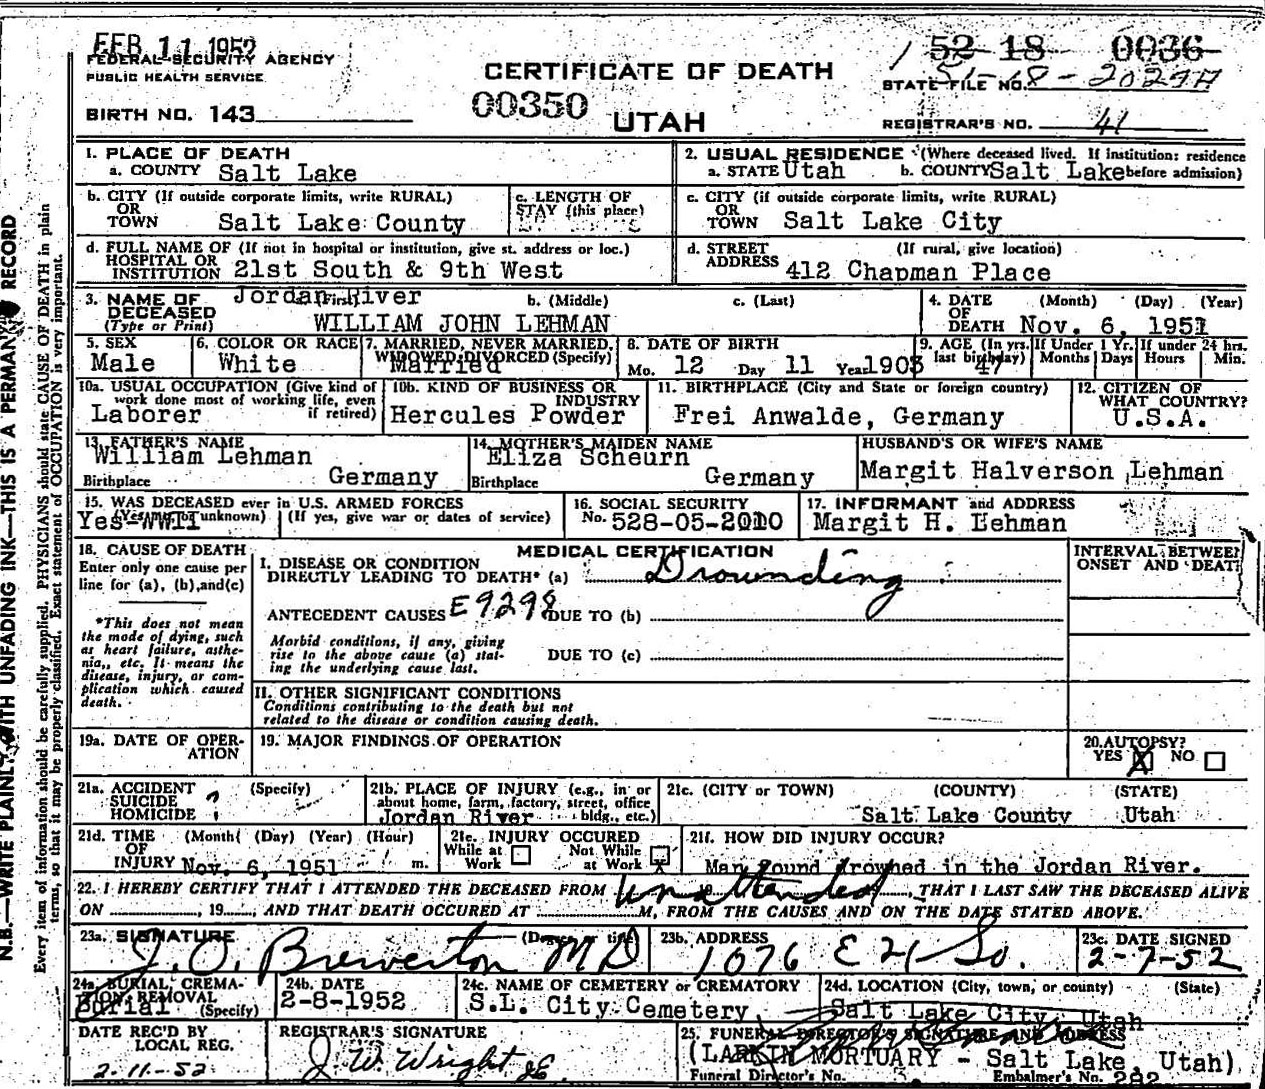 FEB 11 1952
FEDERAL SECURITY AGENCY
PUBLIC HEALTH SERVICE
BIRTH NO. 143
CERTIFICATE OF DEATH
00350
UTAH
52 18 0036
STATE FILE NO. 51-18-2029A
REGISTRAR'S NO. 41
1. PLACE OF DEATH
a. COUNTY Salt Lake
2. USUAL RESIDENCE (Where deceased lived. If institution: residence
a. STATE Utah b. COUNTY Salt Lake before admission)
b. CITY (If outside corporate limits, write RURAL)
OR
TOWN Salt Lake County
c. LENGTH OF
STAY (this place)
c. CITY (if outside corporate limits, write RURAL)
OR
TOWN Salt Lake City
d. FULL NAME OF (If not in hospital or institution, give st. address or loc.)
HOSPITAL OR
INSTITUTION 21st South & 9th West
d. STREET (If rural, give location)
ADDRESS 412 Chapman Place
Jordan River
3. NAME OF a. (First) b. (Middle) c. (Last)
DECEASED
(Type or Print) WILLIAM JOHN LEHMAN
4. DATE (Month) (Day) (Year)
OF
DEATH Nov. 6, 1951
5. SEX
Male
6. COLOR OR RACE
White
7. MARRIED, NEVER MARRIED,
WIDOWED, DIVORCED (Specify)
Married
8. DATE OF BIRTH
Mo. 12 Day 11 Year 1903
9. AGE (In yrs. last birthday) 47
If Under 1 Yr. Months Days
If under 24 hrs. Hours Min.
10a. USUAL OCCUPATION (Give kind of
work done most of working life, even
if retired)
Laborer
10b. KIND OF BUSINESS OR
INDUSTRY
Hercules Powder
11. BIRTHPLACE (City and State or foreign country)
Frei Anwalde, Germany
12. CITIZEN OF
WHAT COUNTRY?
U.S.A.
13. FATHER'S NAME
William Lehman
Birthplace Germany
14. MOTHER'S MAIDEN NAME
Eliza Scheurn
Birthplace Germany
HUSBAND'S OR WIFE'S NAME
Margit Halverson Lehman
15. WAS DECEASED ever in U.S. ARMED FORCES
(Yes, no, or unknown) (If yes, give war or dates of service)
Yes WWII
16. SOCIAL SECURITY
No. 528-05-2010
17. INFORMANT and ADDRESS
Margit H. Lehman
18. CAUSE OF DEATH
Enter only one cause per
line for (a), (b),and(c)
*This does not mean
the mode of dying, such
as heart failure, asthe-
nia,, etc. It means the
disease, injury, or com-
plication which caused
death.
MEDICAL CERTIFICATION
I. DISEASE OR CONDITION
DIRECTLY LEADING TO DEATH* (a) Drownding
ANTECEDENT CAUSES E9298 DUE TO (b)
Morbid conditions, if any, giving
rise to the above cause (a) stat-
ing the underlying cause last.
DUE TO (c)
II. OTHER SIGNIFICANT CONDITIONS
Conditions contributing to the death but not
related to the disease or condition causing death.
INTERVAL BETWEEN
ONSET AND DEATH
19a. DATE OF OPER-
ATION
19. MAJOR FINDINGS OF OPERATION
20. AUTOPSY?
YES X NO
21a. ACCIDENT (Specify)
SUICIDE ?
HOMICIDE
21b. PLACE OF INJURY (e.g., in or
about home, farm, factory, street, office
bldg., etc.)
Jordan River
21c. (CITY or TOWN) (COUNTY) (STATE)
Salt Lake County Utah
21d. TIME (Month) (Day) (Year) (Hour)
OF
INJURY Nov. 6, 1951 m.
21e. INJURY OCCURED
While at Work Not While at Work X
21f. HOW DID INJURY OCCUR?
Man found drowned in the Jordan River.
22. I HEREBY CERTIFY THAT I ATTENDED THE DECEASED FROM Unattended, THAT I LAST SAW THE DECEASED ALIVE
ON , 19 , AND THAT DEATH OCCURED AT M, FROM THE CAUSES AND ON THE DATE STATED ABOVE.
23a. SIGNATURE (Degree or title)
J. O. Brewerton MD
23b. ADDRESS
1076 E 21 So.
23c. DATE SIGNED
2-7-52
24a. BURIAL, CREMA-
TION, REMOVAL
(Specify)
Burial
24b. DATE
2-8-1952
24c. NAME OF CEMETERY or CREMATORY
S.L. City Cemetery
24d. LOCATION (City, town, or county) (State)
Salt Lake City, Utah
DATE REC'D BY
LOCAL REG.
2-11-52
REGISTRAR'S SIGNATURE
J. W. Wright
25. FUNERAL DIRECTOR'S SIGNATURE AND ADDRESS
(LARKIN MORTUARY - Salt Lake, Utah)
Funeral Director's No. Embalmer's No. 292
N.B.—WRITE PLAINLY, WITH UNFADING INK—THIS IS A PERMANENT RECORD
Every item of information should be carefully supplied. PHYSICIANS should state CAUSE OF DEATH in plain
terms, so that it may be properly classified. Exact statement of OCCUPATION is very important.